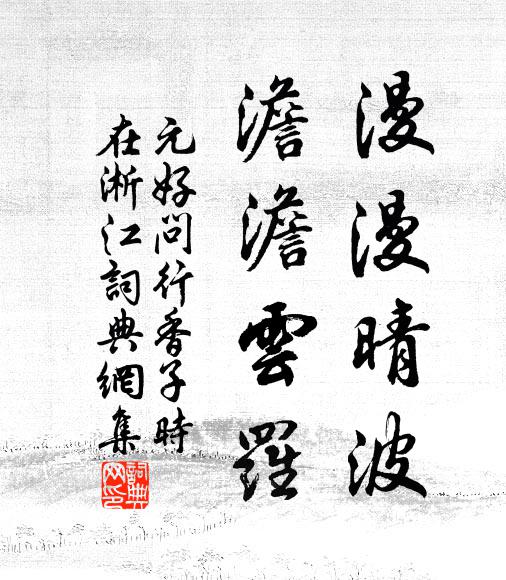 漫漫晴波
澹澹雲羅
元好問行香子時
在淅江詞典網集
詞典網印